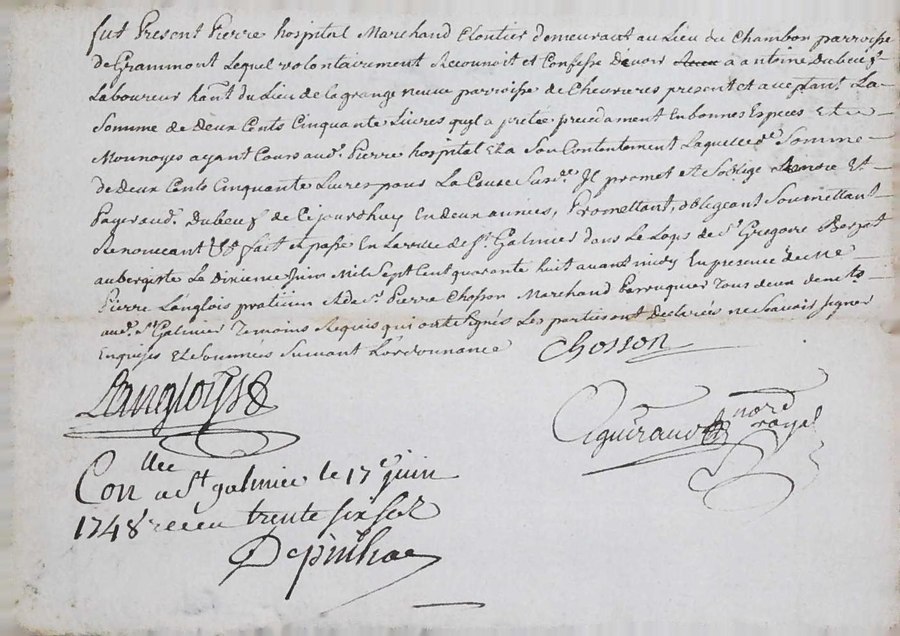 fut Present Pierre hospital Marchand Clontier demeurant au Lieu du Chambon parroisse
de Grammont Lequel volontairement Reconnoit et Confesse devoir a antoine Dubeuf
Laboureur hant du Lieu de la grange neuve parroisse de Chevrieres present et acceptant La
Somme de deux Cents Cinquante Livres qu'il a pretée precedament En bonnes Especes Et
Monnoyes ayant Cours aud. Pierre hospital Et a Son Contentement Laquelle de Somme
de deux Cents Cinquante Livres pour La Cause Susde Il promet et S'oblige rendre Et
Payer aud. Dubeuf de Cejourdhuy En deux années, Promettant, obligeant Soumettant
Renonceant && fait et passé En La ville de St Galmier dans Le Logis de Sr Gregoire
aubergiste Le Dixieme Juin Mil Sept Cent quarante huit avant midy En presence de Me
Pierre Langlois praticien Et de Sr Pierre Chosson Marchand Perruquier Tous deux demts
aud. St Galmier Temoins Requis qui ont Signés Les parties ont declarées ne Scavoir Signer
Enquises Et Sommées Suivant L'ordonnance Chosson
Langlois
nore
royal
Conllee a St galmier le 17e juin
1748 receu trente six sols